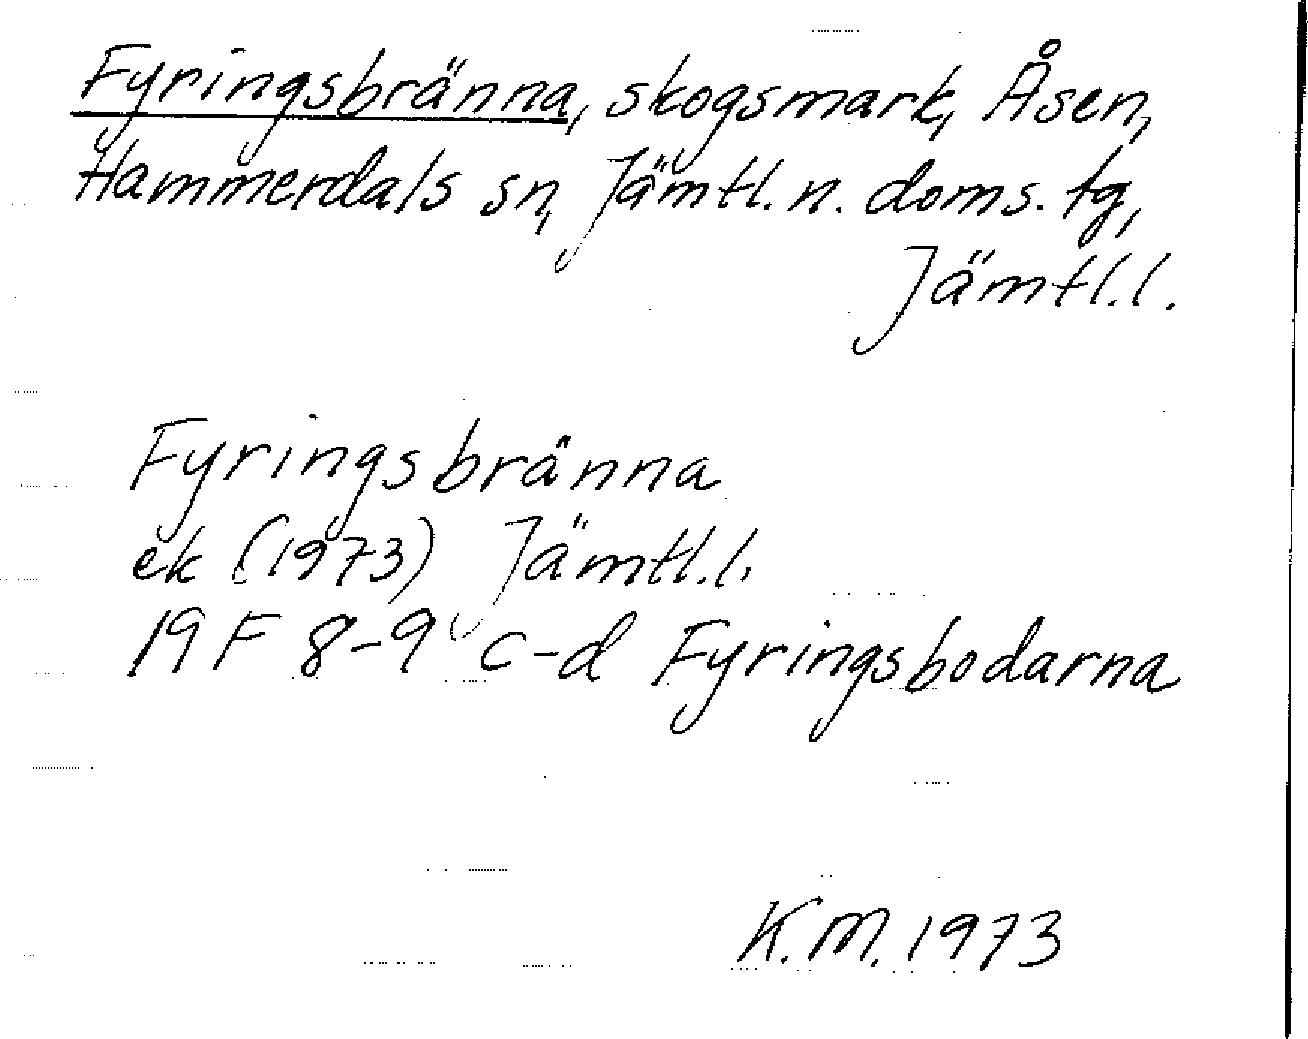 Fyringsbränna, skogsmark, Åsen,
Hammerdals sn, Jämtl. n. doms. tg,
Jämtl. l.
Fyringsbränna
ek (1973) Jämtl. l.
19 F 8-9 c-d Fyringsbodarna
K.M. 1973